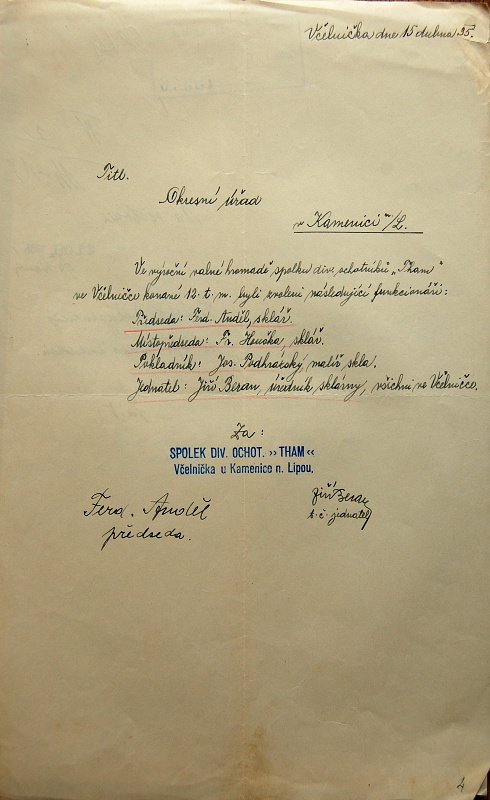 Včelnička dne 15 dubna 35.
Titl.
Okresní úřad
v Kamenici n/L.
Ve výroční valné hromadě spolku div. ochotníků „Tham"
ve Včelničce konané 12. t. m. byli zvoleni následující funkcionáři:
Předseda: Ferd. Anděl, sklář.
Místopředseda: Fr. Houška, sklář.
Pokladník: Jos. Podhrázský, malíř skla.
Jednatel: Jiří Beran, úředník sklárny, všichni ve Včelničce.
Za:
SPOLEK DIV. OCHOT. ,,THAM"
Včelnička u Kamenice n. Lipou,
Ferd. Anděl
předseda.
Jiří Beran
t. č. jednatel
4